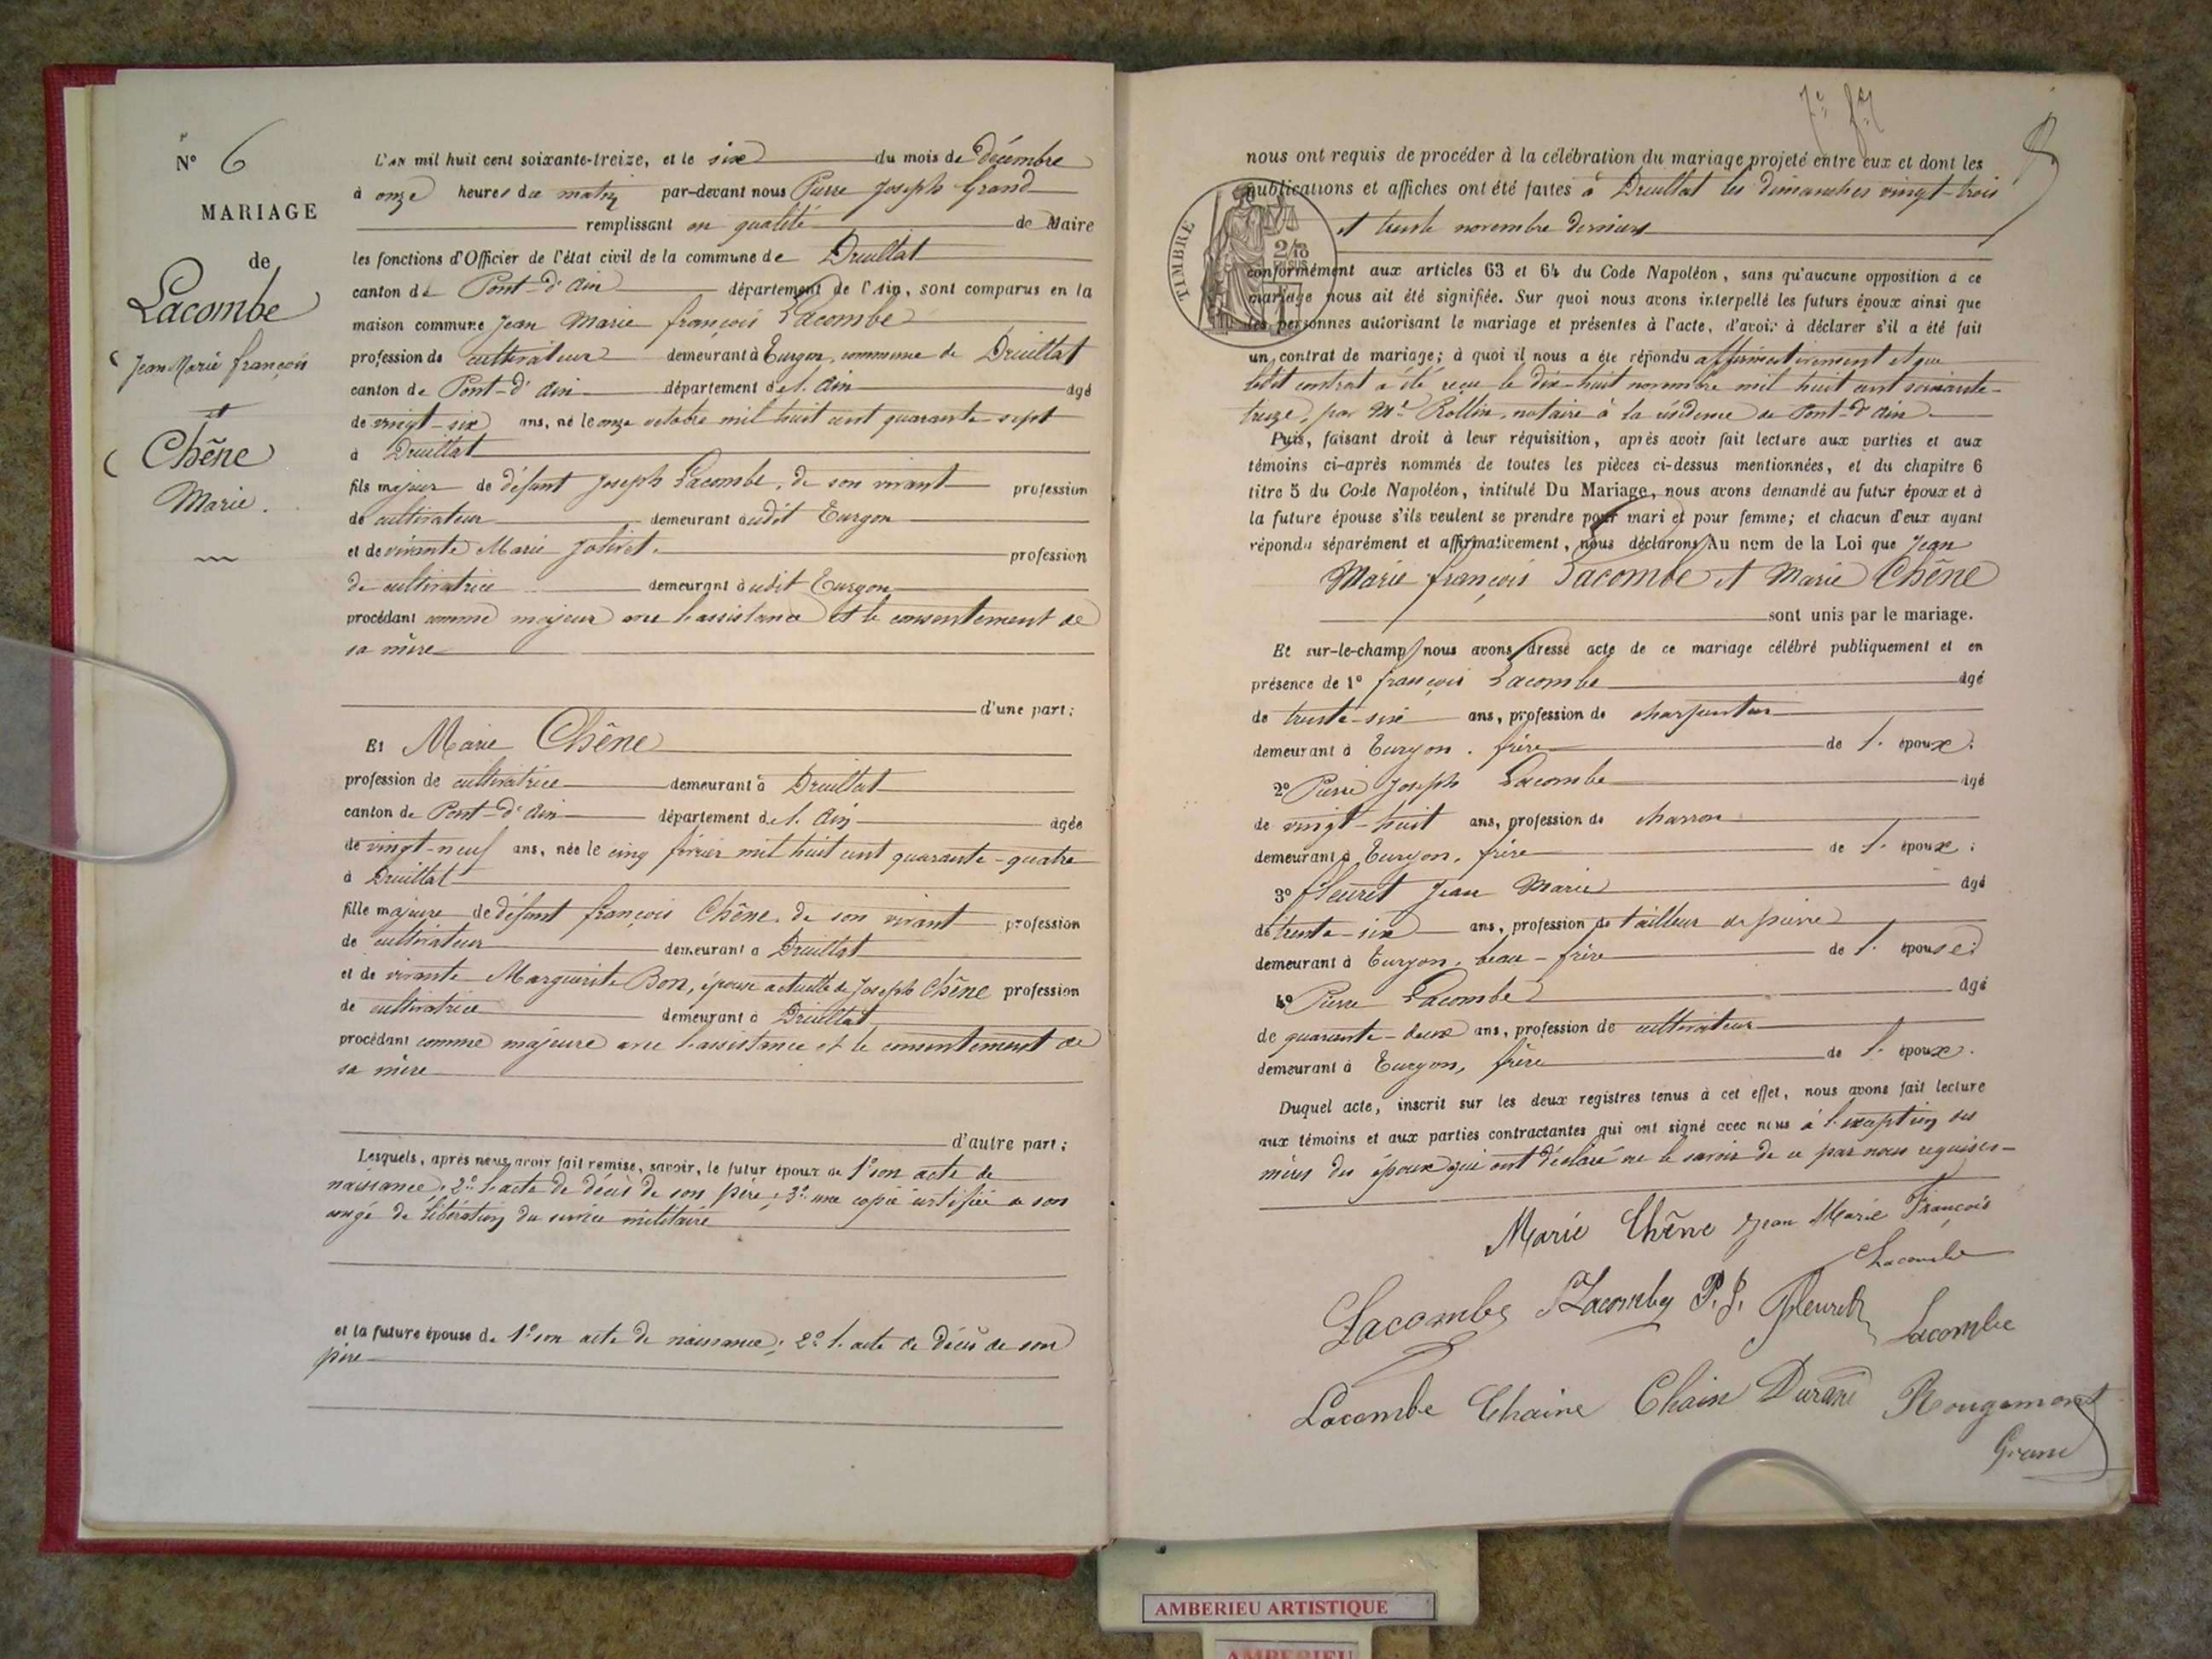 N° 6
MARIAGE
de
Lacombe
Jean Marie françois
et
Chêne
Marie.
L'AN mil huit cent soixante-treize, et le six du mois de décembre
à onze heures du matin par-devant nous Pierre Joseph Grand
remplissant en qualité de Maire
les fonctions d'Officier de l'état civil de la commune de Druillat
canton de Pont-d'Ain département de l'Ain, sont comparus en la
maison commune Jean Marie françois Lacombe
profession de cultivateur demeurant à Turgon, commune de Druillat
canton de Pont-d'Ain département de l'Ain âgé
de vingt-six ans, né le onze octobre mil huit cent quarante-sept
à Druillat
fils majeur de défunt Joseph Lacombe, de son vivant profession
de cultivateur demeurant audit Turgon
et de vivante Marie Jolivet. profession
de cultivatrice demeurant audit Turgon
procédant comme majeur avec l'assistance et le consentement de
sa mère
d'une part;
Et Marie Chêne
profession de cultivatrice demeurant à Druillat
canton de Pont-d'Ain département de l'Ain âgée
de vingt-neuf ans, née le cinq février mil huit cent quarante-quatre
à Druillat
fille majeure de défunt françois Chêne, de son vivant profession
de cultivateur demeurant à Druillat
et de vivante Marguerite Bon, épouse actuelle de Joseph Chêne profession
de cultivatrice demeurant à Druillat
procédant comme majeure avec l'assistance et le consentement de
sa mère
d'autre part;
Lesquels, après nous avoir fait remise, savoir, le futur époux de 1° son acte de
naissance; 2° l'acte de décès de son père; 3° une copie certifiée de son
congé de libération du service militaire
et la future épouse de 1° son acte de naissance; 2° l'acte de décès de son
père
nous ont requis de procéder à la célébration du mariage projeté entre eux et dont les
publications et affiches ont été faites à Druillat les dimanches vingt-trois
et trente novembre derniers
TIMBRE
2/10
EN SUS
conformément aux articles 63 et 64 du Code Napoléon, sans qu'aucune opposition à ce
mariage nous ait été signifiée. Sur quoi nous avons interpellé les futurs époux ainsi que
les personnes autorisant le mariage et présentes à l'acte, d'avoir à déclarer s'il a été fait
un contrat de mariage; à quoi il nous a été répondu affirmativement et que
ledit contrat a été reçu le dix-huit novembre mil huit cent soixante-
treize, par Me Rollin, notaire à la résidence de Pont-d'Ain
Puis, faisant droit à leur réquisition, après avoir fait lecture aux parties et aux
témoins ci-après nommés de toutes les pièces ci-dessus mentionnées, et du chapitre 6
titre 5 du Code Napoléon, intitulé Du Mariage, nous avons demandé au futur époux et à
la future épouse s'ils veulent se prendre pour mari et pour femme; et chacun d'eux ayant
répondu séparément et affirmativement, nous déclarons Au nom de la Loi que Jean
Marie françois Lacombe et Marie Chêne
sont unis par le mariage.
Et sur-le-champ nous avons dressé acte de ce mariage célébré publiquement et en
présence de 1° françois Lacombe âgé
de trente-six ans, profession de charpentier
demeurant à Turgon, frère de l'époux;
2° Pierre Joseph Lacombe âgé
de vingt-huit ans, profession de charron
demeurant à Turgon, frère de l'époux;
3° fleuret Jean Marie âgé
de trente-six ans, profession de tailleur de pierre
demeurant à Turgon, beau-frère de l'épouse;
4° Pierre Lacombe âgé
de quarante-deux ans, profession de cultivateur
demeurant à Turgon, frère de l'époux.
Duquel acte, inscrit sur les deux registres tenus à cet effet, nous avons fait lecture
aux témoins et aux parties contractantes qui ont signé avec nous à l'exception des
mères des époux qui ont déclaré ne le savoir de ce par nous requises
Marie Chêne Jean Marie François
Lacombe
Lacombe Lacombe P. J. fleuret Lacombe
Lacombe Chaine Chain Durand Rougemont
Grand
AMBERIEU ARTISTIQUE
AMBERIEU